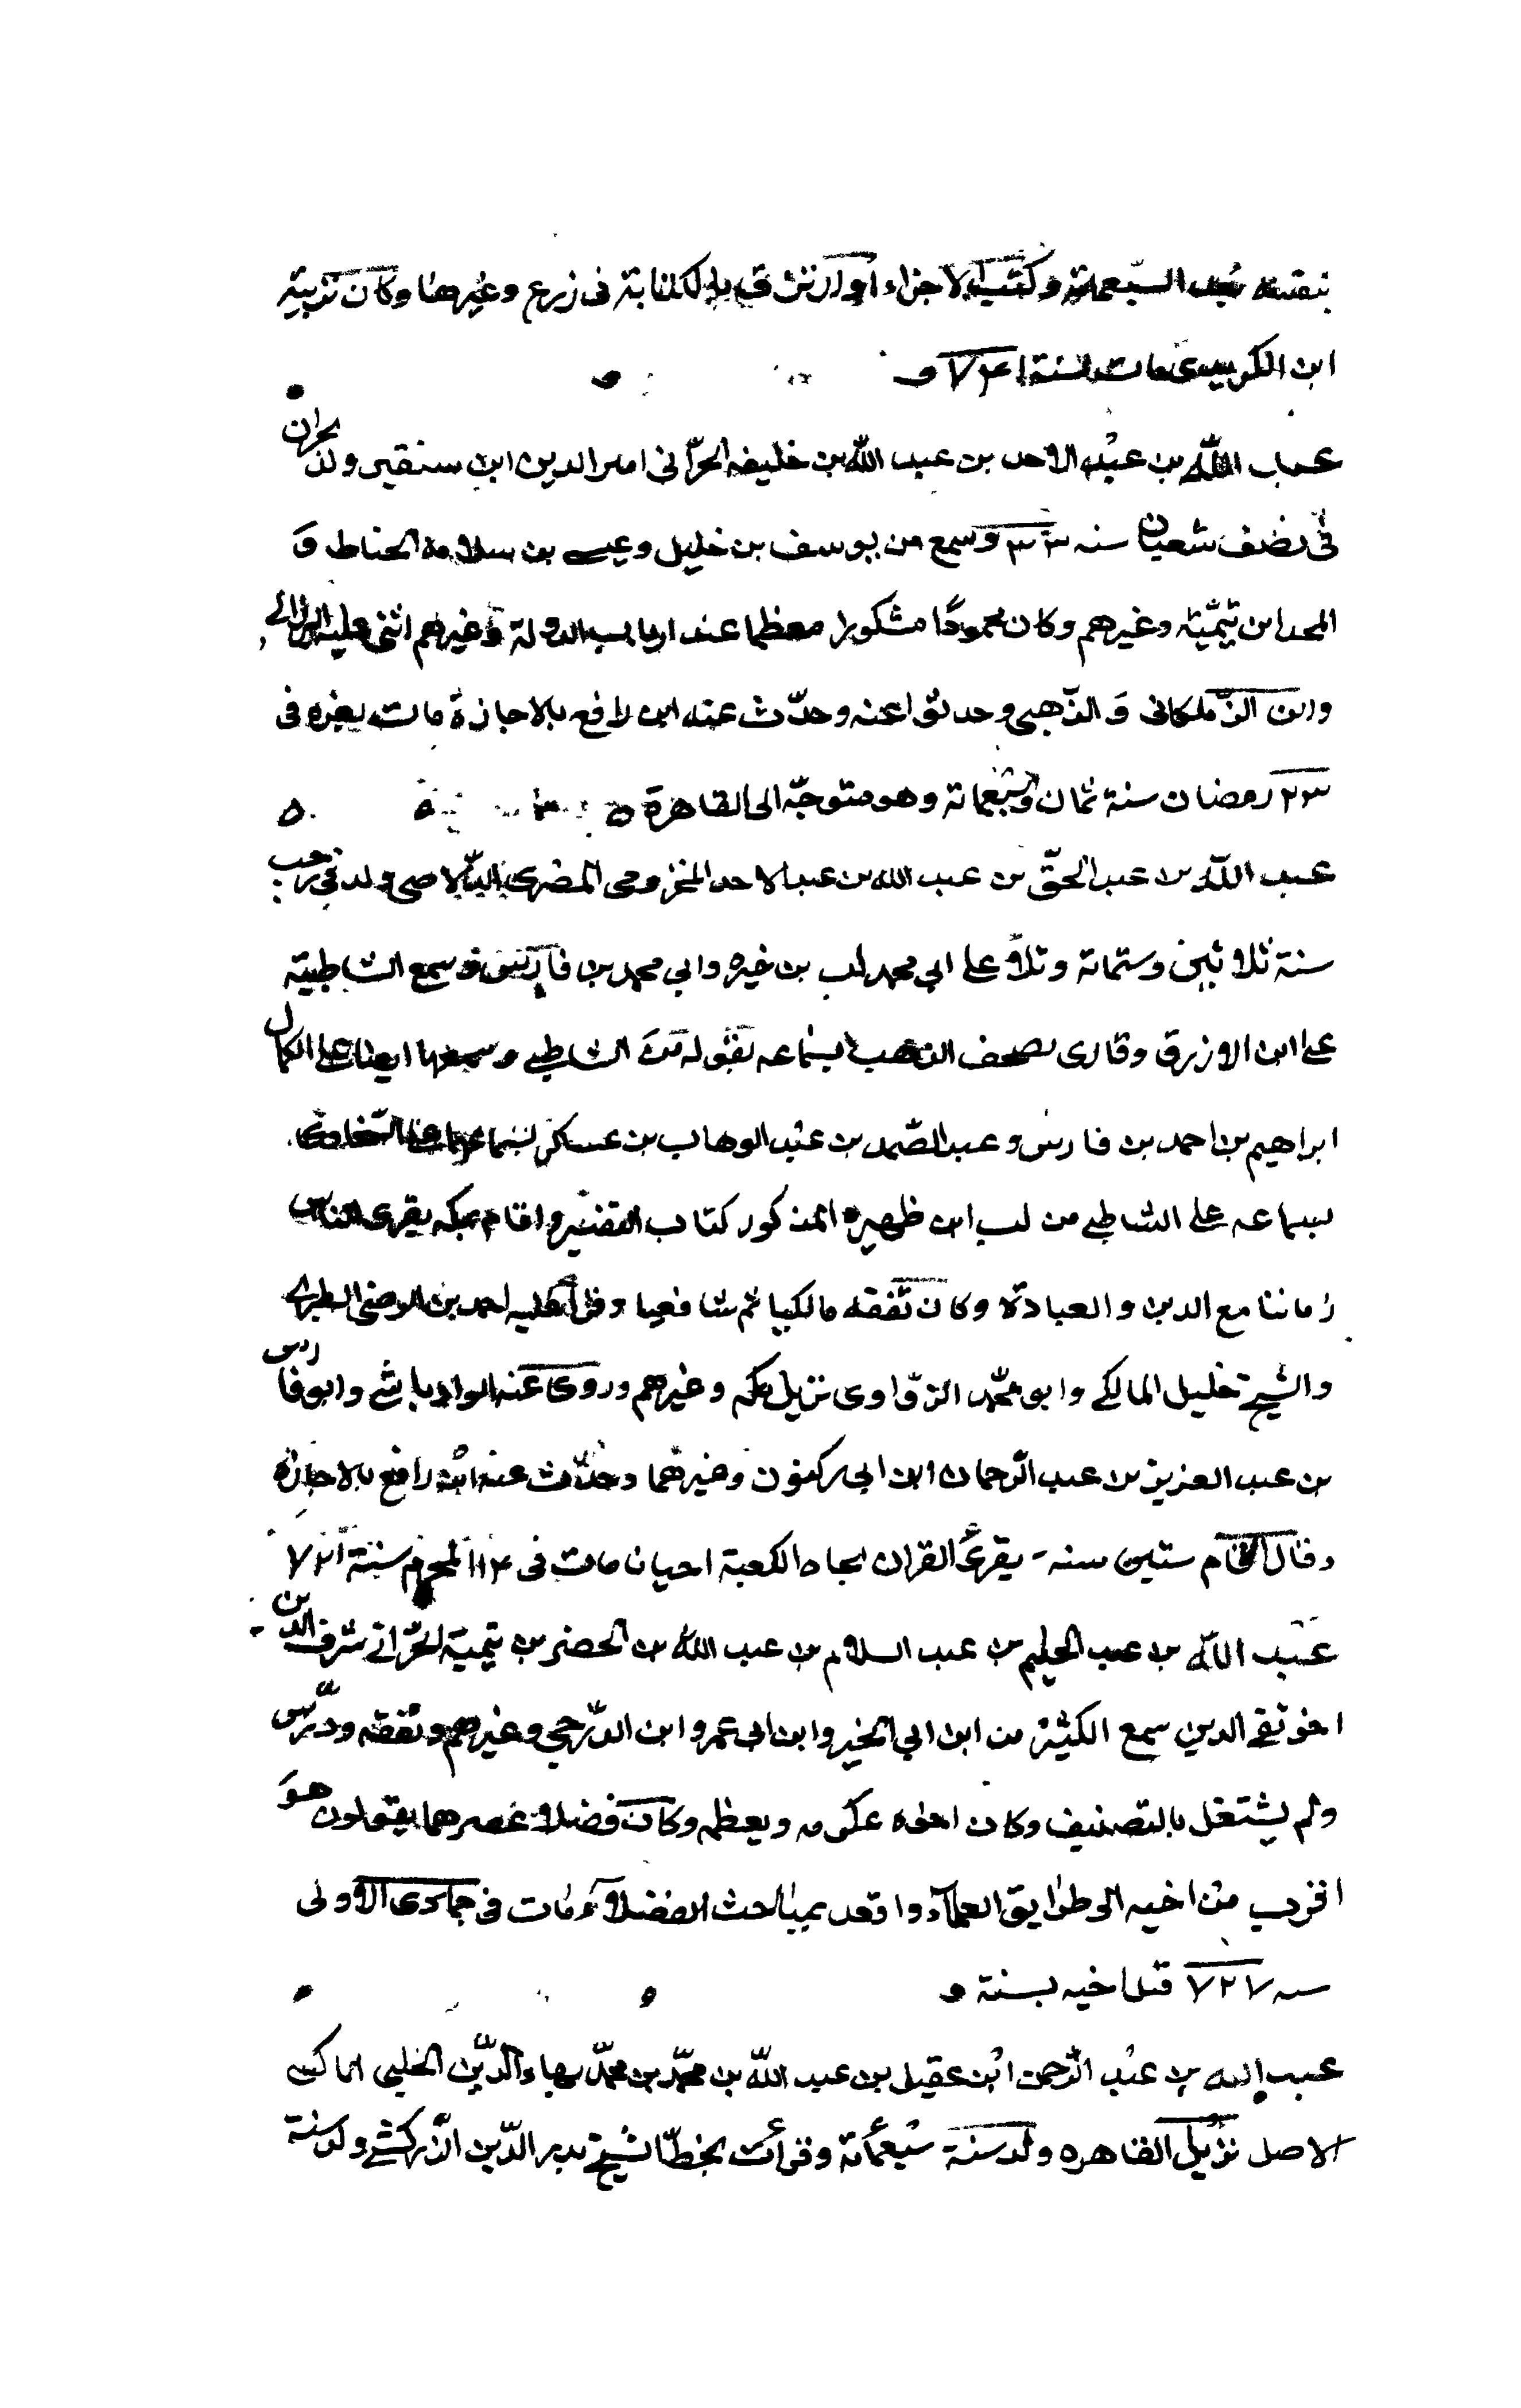 بنفسه بعد السبعمائة وكتب الاجزاء وارتزق بالكتابة فى زرع وغيرها وكان تربية
ابن الكويسى مات سنة ٧٣١
عبد الله بن عبد الاحد بن عبد الله بن خليفه الحرّانى امين الدين ابن سنقير ولد بحران
فى نصف شعبان سنه ٣٣ وسمع من يوسف بن خليل وعيسى بن سلامة الحناط و
المجد ابن تيميّة وغيرهم وكان محمودًا مشكورا معظما عند ارباب الدولة وغيرهم اثنى عليه البرزالى
وابن الزملكانى والذّهبى وحدثوا عنه وحدّث عنه ابن رافع بالاجازة مات بغزه فى
٢٣ رمضان سنة ثمان وسبعمائة وهو متوجّه الى القاهرة
عبد الله بن عبد الحقّ بن عبد الله بن عبد الاحد المخزومى المصرى الدّلاصى ولد فى رجب
سنة ثلاثين وستمائة وتلا على ابي محمد لب بن خيره وابي محمد بن فارس وسمع الشاطبية
على ابن الازرق وقارى مصحف الذهب بسماعه بقوله من الشاطبى وسمعها ايضا على الكمال
ابراهيم بن احمد بن فارس وعبد الصّمد بن عبد الوهاب بن عساكر بسماعهما على السّخاوى
بسماعه على الشاطبى من لب ابن ظهيره المذكور كتاب التفسير واقام بمكه يقرى الناس
زمانا مع الدين والعبادة وكان تفقه مالكيا ثم شافعيا وقرأ عليه احمد بن الرضى الطبرى
والشيخ خليل المالكى وابو محمّد الزّواوى نزيل مكه وغيرهم وروى عنه الوادياشى وابو فارس
بن عبد العزيز بن عبد الرّحمان ابن ابى ركنون وغيرهما وحدّث عنه ابن رافع بالاجازة
وقال اقام ستين سنه يقرئ القران تجاه الكعبة احيانا مات فى ١٤ المحرم سنة ٧٢١
عبد الله بن عبد الحليم بن عبد السلام بن عبد الله بن الخضر بن تيمية الحرّانى شرف الدين
اخو تقى الدين سمع الكثير من ابن ابي الخير وابن ابى عمر وابن الدّرجى وغيرهم وتفقه ودرّس
ولم يشتغل بالتصنيف وكان اخوه يكرمه ويعظمه وكان فضلاء عصرهما يقولون هو
اقرب من اخيه الى طرايق العلماء واقعد بمباحث الفضلاء ومات فى جمادى الاولى
سنه ٧٢٧ قبل اخيه بسنة
عبد الله بن عبد الرّحمن ابن عقيل بن عبد الله بن محمّد بن محمّد بهاء الدّين الحلبى
الاصل نزيل القاهره ولد سنة سبعمائة وقرأت بخطّ الشيخ بدر الدّين الزّركشى ولد سنة